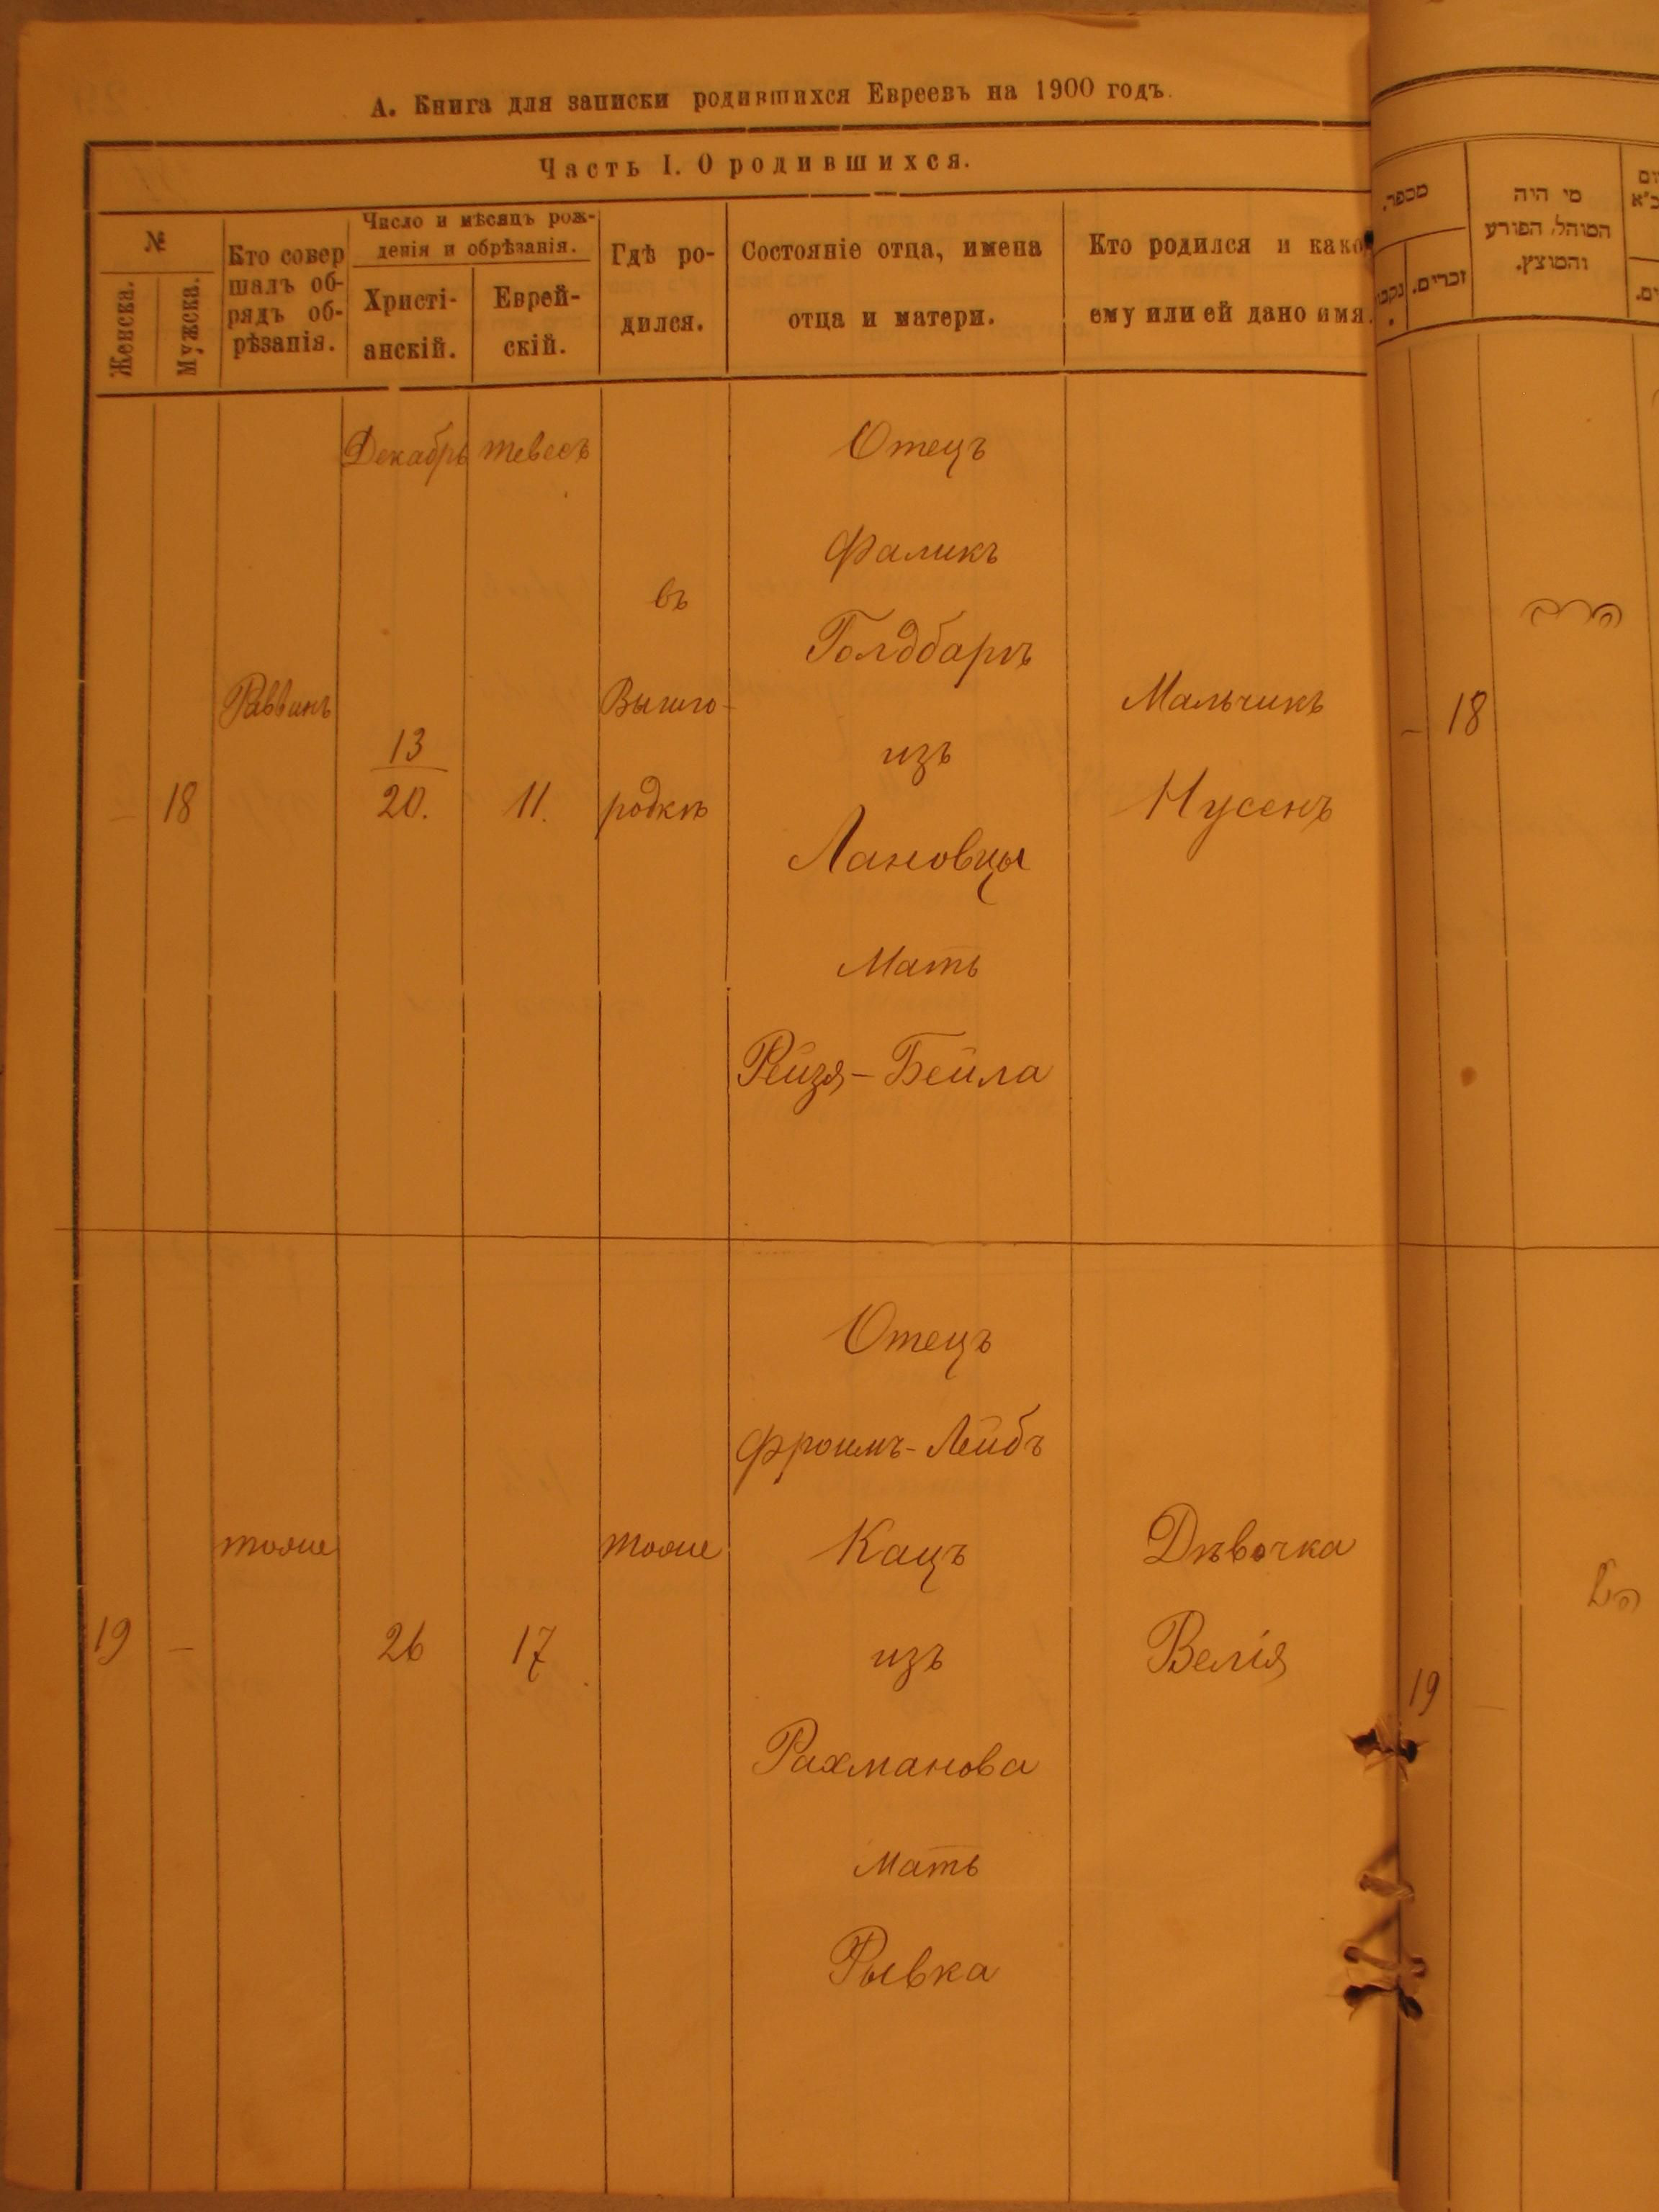 А. Книга для записки родившихся Евреевъ на 1900 годъ.
Часть I. О родившихся.
№
Женска.
Мужска.
Кто совер
шалъ об-
рядъ об-
рѣзанія.
Число и мѣсяцъ рож-
денія и обрѣзанія.
Христі-
анскій.
Еврей-
скій.
Гдѣ ро-
дился.
Состояніе отца, имена
отца и матери.
Кто родился и како
ему или ей дано имя.
18
Раввинъ
Декабрь
13
20.
тевесъ
11.
въ
Вышго-
родкѣ
Отецъ
Фаликъ
Голдбаргъ
изъ
Лановцы
Мать
Рейзя-Бейла
Мальчикъ
Нусенъ
19
—
тоже
26
17
тоже
Отецъ
Фроимъ-Лейбъ
Кацъ
изъ
Рахманова
Мать
Рывка
Дѣвочка
Велія
מספר.
זכרים.
מי היה
המוהל, הפורע
והמוצץ.
– 18
הרב
19